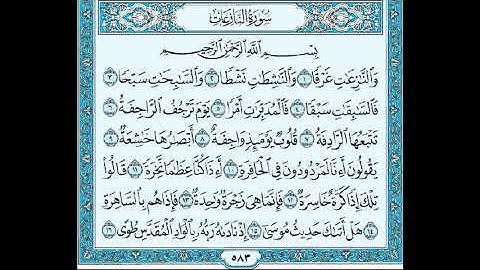 سُورَةُ النَّازِعَاتِ
بِسْمِ اللَّهِ الرَّحْمَٰنِ الرَّحِيمِ
وَالنَّازِعَاتِ غَرْقًا ١ وَالنَّاشِطَاتِ نَشْطًا ٢ وَالسَّابِحَاتِ سَبْحًا ٣
فَالسَّابِقَاتِ سَبْقًا ٤ فَالْمُدَبِّرَاتِ أَمْرًا ٥ يَوْمَ تَرْجُفُ الرَّاجِفَةُ ٦
تَتْبَعُهَا الرَّادِفَةُ ٧ قُلُوبٌ يَوْمَئِذٍ وَاجِفَةٌ ٨ أَبْصَارُهَا خَاشِعَةٌ ٩
يَقُولُونَ أَءِنَّا لَمَرْدُودُونَ فِي الْحَافِرَةِ ١٠ أَءِذَا كُنَّا عِظَامًا نَّخِرَةً ١١ قَالُوا
تِلْكَ إِذًا كَرَّةٌ خَاسِرَةٌ ١٢ فَإِنَّمَا هِيَ زَجْرَةٌ وَاحِدَةٌ ١٣ فَإِذَا هُم بِالسَّاهِرَةِ
١٤ هَلْ أَتَاكَ حَدِيثُ مُوسَىٰ ١٥ إِذْ نَادَاهُ رَبُّهُ بِالْوَادِ الْمُقَدَّسِ طُوًى ١٦
٥٨٣